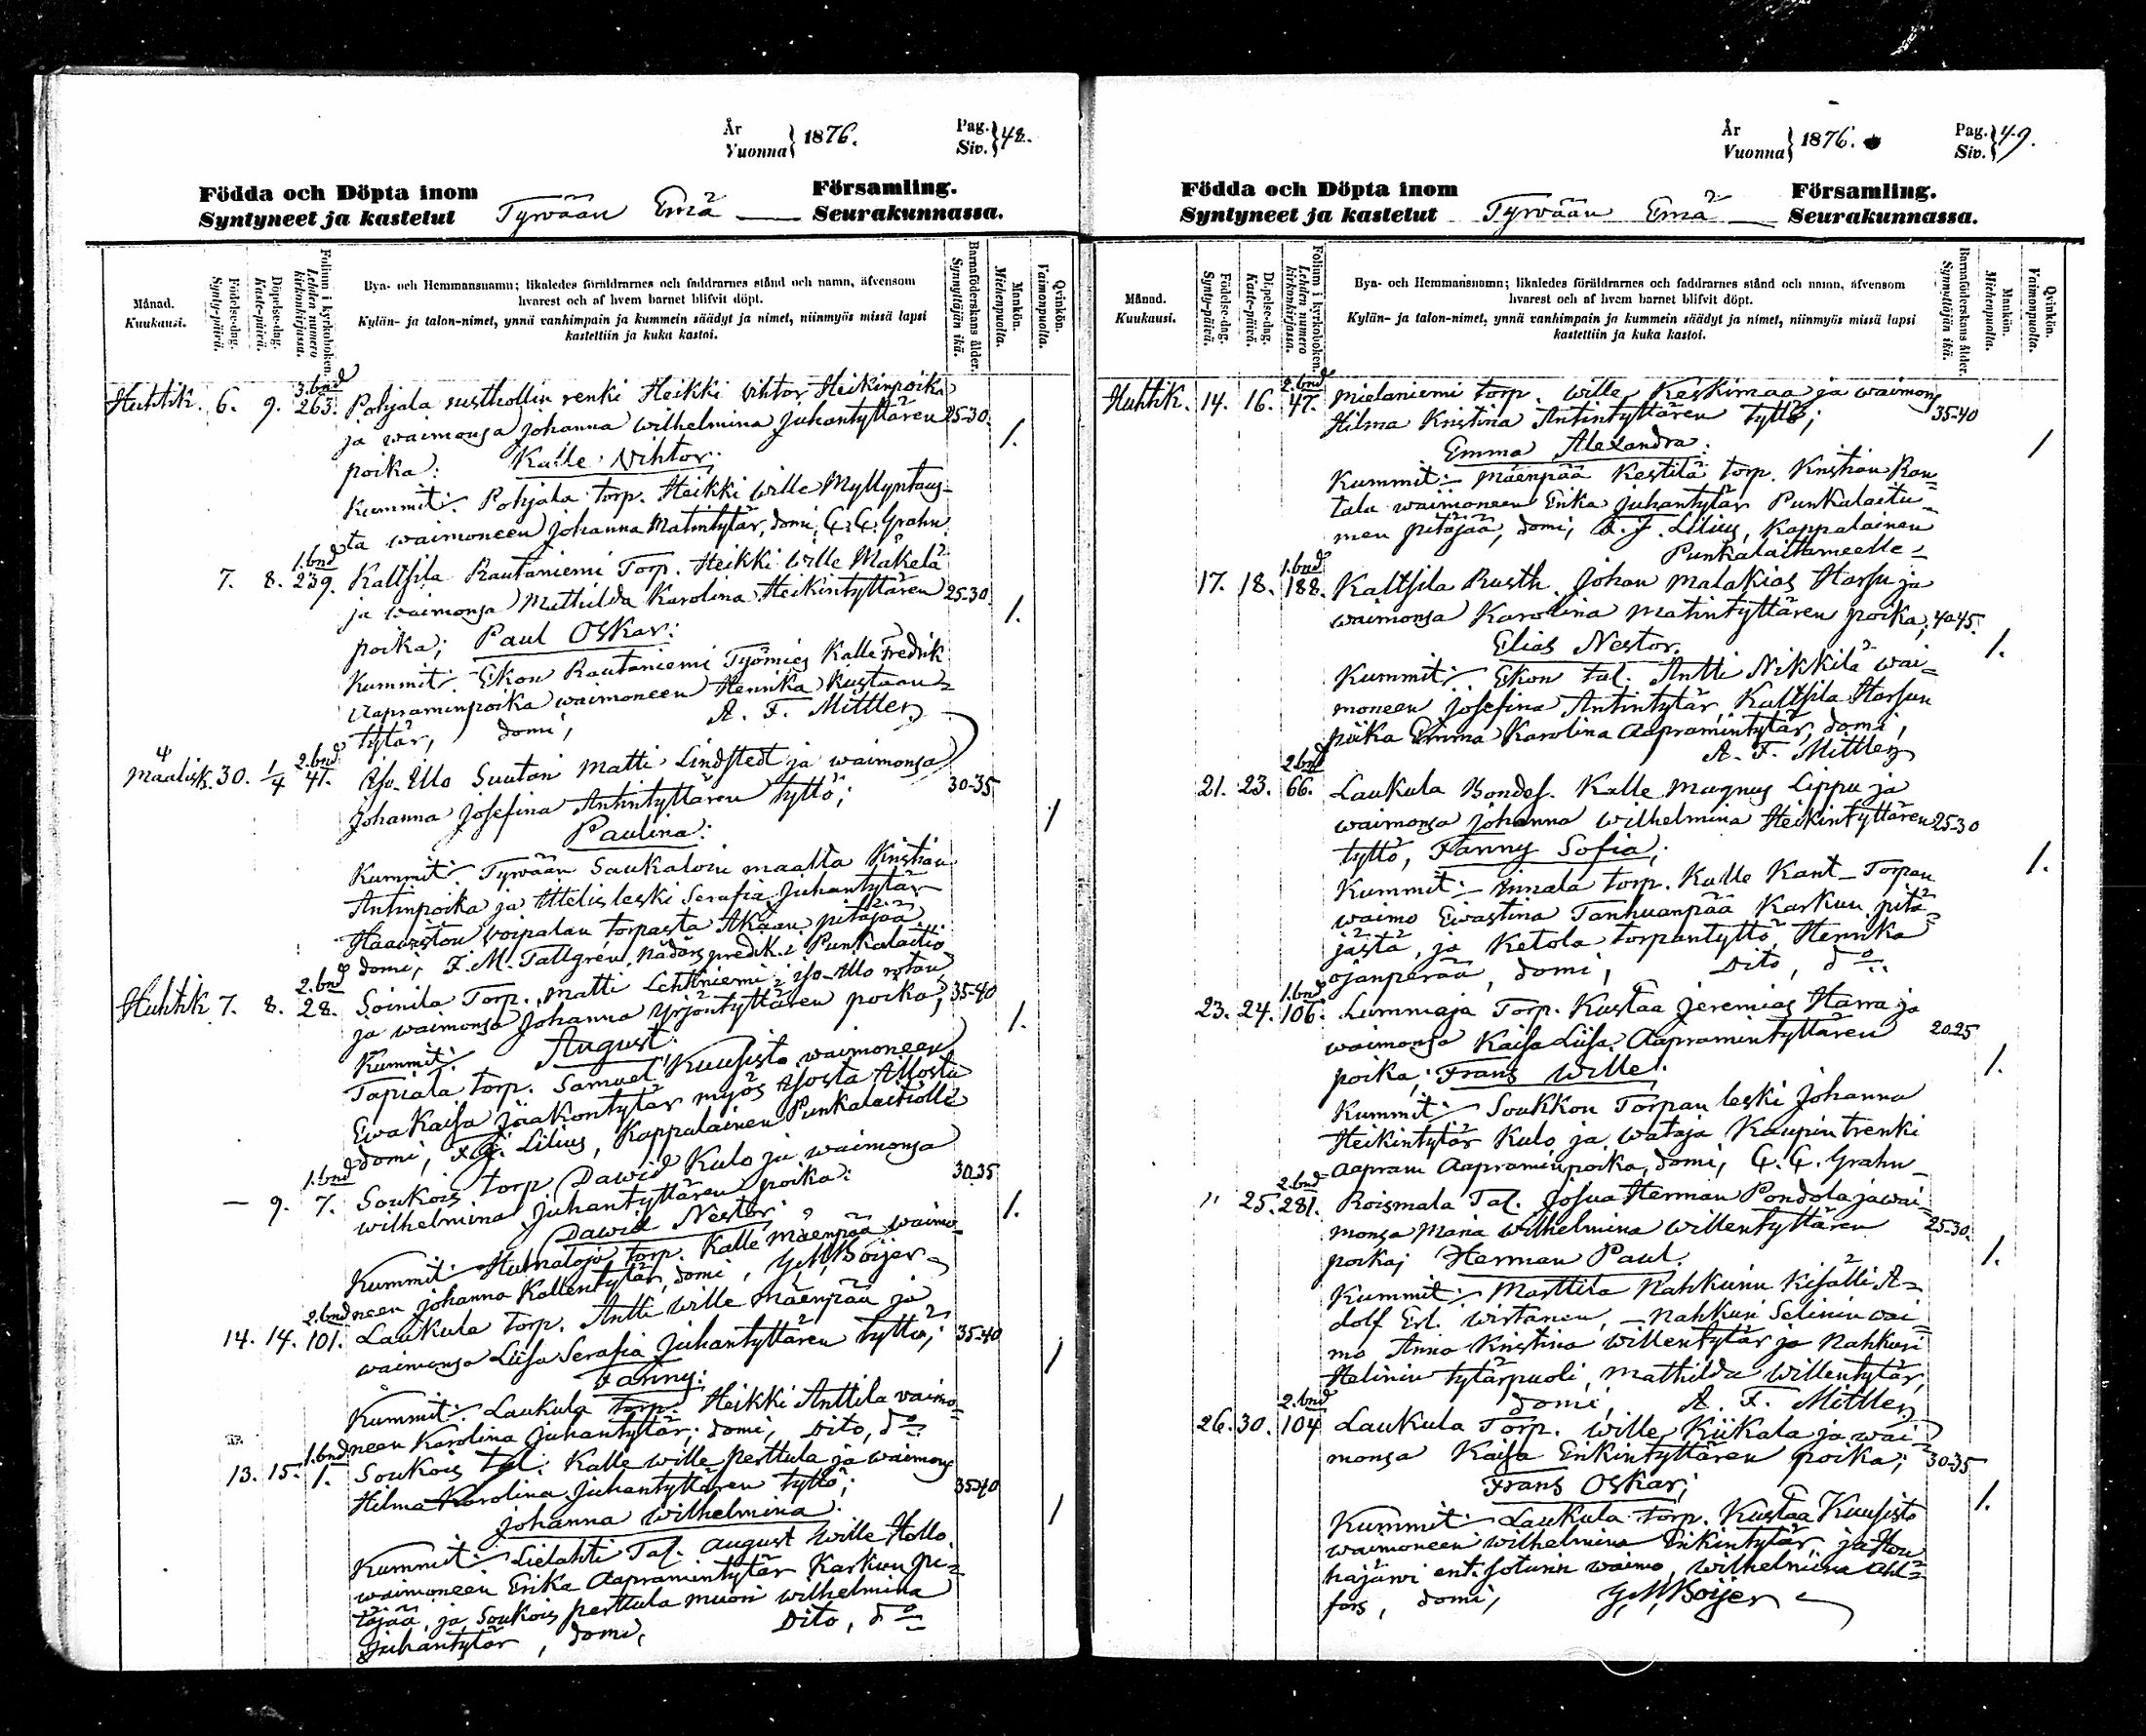 År
Vuonna } 1876.
Pag.
Siv. } 48.
Födda och Döpta inom Församling.
Syntyneet ja kastetut Tyrvään Emä Seurakunnassa.
Månad.
Kuukausi.
Födelse-dag.
Synty-päivä.
Döpelse-dag.
Kaste-päivä.
Folium i kyrkoboken.
Lehden numero kirkonkirjassa.
Bya- och Hemmansnamn; likaledes föräldrarnes och faddrarnes stånd och namn, äfvensom
hvarest och af hvem barnet blifvit döpt.
Kylän- ja talon-nimet, ynnä vanhimpain ja kummein säädyt ja nimet, niinmyös missä lapsi
kastettiin ja kuka kastoi.
Barnaföderskans ålder.
Synnyttäjän ikä.
Mankön.
Miehenpuolia.
Qvinkön.
Vaimonpuolia.
Huhtik. 6. 9. 3. bnd 263. Pohjala rusthollin renki Heikki Vihtor Heikinpoika
ja waimonsa Johanna Wilhelmina Juhantyttären 25-30.
poika: Kalle Vihtor; 1.
Kummit: Pohjala torp. Heikki Wille Myllyntaus-
ta waimoneen Johanna Matintytär, domi, G. G. Grahn
7. 8. 1. bnd 239. Kaltsila Rautaniemi Torp. Heikki Wille Mäkelä
ja waimonsa Mathilda Karolina Heikintyttären 25-30
poika; Paul Oskar: 1.
Kummit: Ekon Rautaniemi Työmies Kalle Fredrik
Aapraminpoika waimoneen Henrika Kustaan-
tytär, domi, A. F. Mittler
Maalisk. 30. 1/4 2. bnd 41. Iso-Illo Suutari Matti Lindstedt ja waimonsa
Johanna Josefina Antintyttären tyttö; 30-35
Paulina: 1
Kummit: Tyrvään Saukaloin maalta Kristian
Antinpoika ja Itellisleski Serafia Juhantytär
Haaviston Voipalan torpasta Akaan pitäjää
domi, F. M. Tallgrén, Nådårspredik. i Punkalaitio
Huhtik. 7. 8. 2. bnd 28. Soinila Torp. Matti Lehtiniemi iso-Illo rotau
ja waimonsa Johanna Yrjöntyttären poika, 35-40
Kummit: August: 1.
Tapiala torp. Samuel Kuusisto waimoneen
Ewa Kaisa Jaakontytär myös Isosta Illosta
domi, Lilius, Kappalainen Punkalaitiolle
— 9. 1. bnd 7. Soukois torp Dawid Kulo ja waimonsa
Wilhelmina Juhantyttären poika: 30-35
Dawid Nestor 1.
Kummit: torp. Kalle Mäenpää waimo-
neen Johanna Kallentytär, domi, G. M. Boijer
14. 14. 2. bnd 101. Laukula torp. Antti Wille Mäenpää ja
waimonsa Liisa Serafia Juhantyttären tyttö; 35-40
Fanny: 1
Kummit: Laukula torp. Heikki Anttila vaimo-
neen Karolina Juhantytär; domi, Dito, do
13. 15. 1. bnd 1. Soukois tal. Kalle Wille Perttula ja waimons
Hilma Karolina Juhantyttären tyttö; 35-40
Johanna Wilhelmina. 1
Kummit: Lielahti Tal. August Wille Hollo
waimoneen Erika Aapramintytär Karkun pi-
täjää, ja Soukois Perttula muori Wilhelmina
Juhantytär, domi, Dito, do
År
Vuonna } 1876.
Pag.
Siv. } 49.
Födda och Döpta inom Församling.
Syntyneet ja kastetut Tyrvään Emä Seurakunnassa.
Månad.
Kuukausi.
Födelse-dag.
Synty-päivä.
Döpelse-dag.
Kaste-päivä.
Folium i kyrkoboken.
Lehden numero kirkonkirjassa.
Bya- och Hemmansnamn; likaledes föräldrarnes och faddrarnes stånd och namn, äfvensom
hvarest och af hvem barnet blifvit döpt.
Kylän- ja talon-nimet, ynnä vanhimpain ja kummein säädyt ja nimet, niinmyös missä lapsi
kastettiin ja kuka kastoi.
Barnaföderskans ålder.
Synnyttäjän ikä.
Mankön.
Miehenpuolia.
Qvinkön.
Vaimonpuolia.
Huhtik. 14. 16. 2. bnd 47. Mielaniemi torp. Wille Keskimaa ja waimons
Hilma Kristina Antintyttären tyttö; 35-40
Emma Alexandra. 1
Kummit: Mäenpää Kestilä torp. Kristian Ran-
tala waimoneen Erika Juhantytär Punkalaitu-
men pitäjää, domi, Lilius, Kappalainen
Punkalaitumeelle
17. 18. 1. bnd 188. Kaltsila Rusth. Johan Malakias Harsu ja
waimonsa Karolina Matintyttären poika, 40-45.
Elias Nestor. 1.
Kummit: Ekon tal. Antti Nikkilä wai-
moneen Josefina Antintytär, Kaltsila Harsun
piika Emma Karolina Aapramintytär, domi,
A. F. Mittler
21. 23. 2. bnd 66. Laukula Bondes. Kalle Magnus Lippu ja
waimonsa Johanna Wilhelmina Heikintyttären 25-30
tyttö, Fanny Sofia; 1.
Kummit: torp. Kalle Kant Torpan
waimo Ewastina Tanhuanpää Karkun pitä-
jästä, ja Ketola torpantyttö Henrika
Ojanperää, domi, Dito, do.
23. 24. 1. bnd 106. Lummaja Torp. Kustaa Jeremias Harra ja
waimonsa Kaisa Liisa Aapramintyttären 20-25
poika; Frans Wille; 1.
Kummit: Soukkon Torpan leski Johanna
Heikintytär Kulo ja Wataja Kaupin trenki
Aapram Aapraminpoika, domi, G. G. Grahn
" 25. 2. bnd 281. Roismala Tal. Josua Herman Pondola ja wai-
monsa Maria Wilhelmina Willentyttären 25-30.
poika; Herman Paul. 1.
Kummit: Marttila Nahkurin Kisälli A-
dolf Erl. Wirtanen, Nahkuri Selinin wai-
mo Anna Kristina Willentytär ja Nahkuri
Helinin tytärpuoli, Mathilda Willentytär,
domi, A. F. Mittler
26. 30. 2. bnd 104 Laukula Torp. Wille Kiikala ja wai-
monsa Kaisa Erikintyttären poika; 30-35
Frans Oskar; 1.
Kummit: Laukula torp. Kustaa Kuusisto
waimoneen Wilhelmina Erikintytär, ja Hou-
hajärwi ent. soturin waimo, Wilhelmiina Ahl-
fors, domi, G. M. Boijer